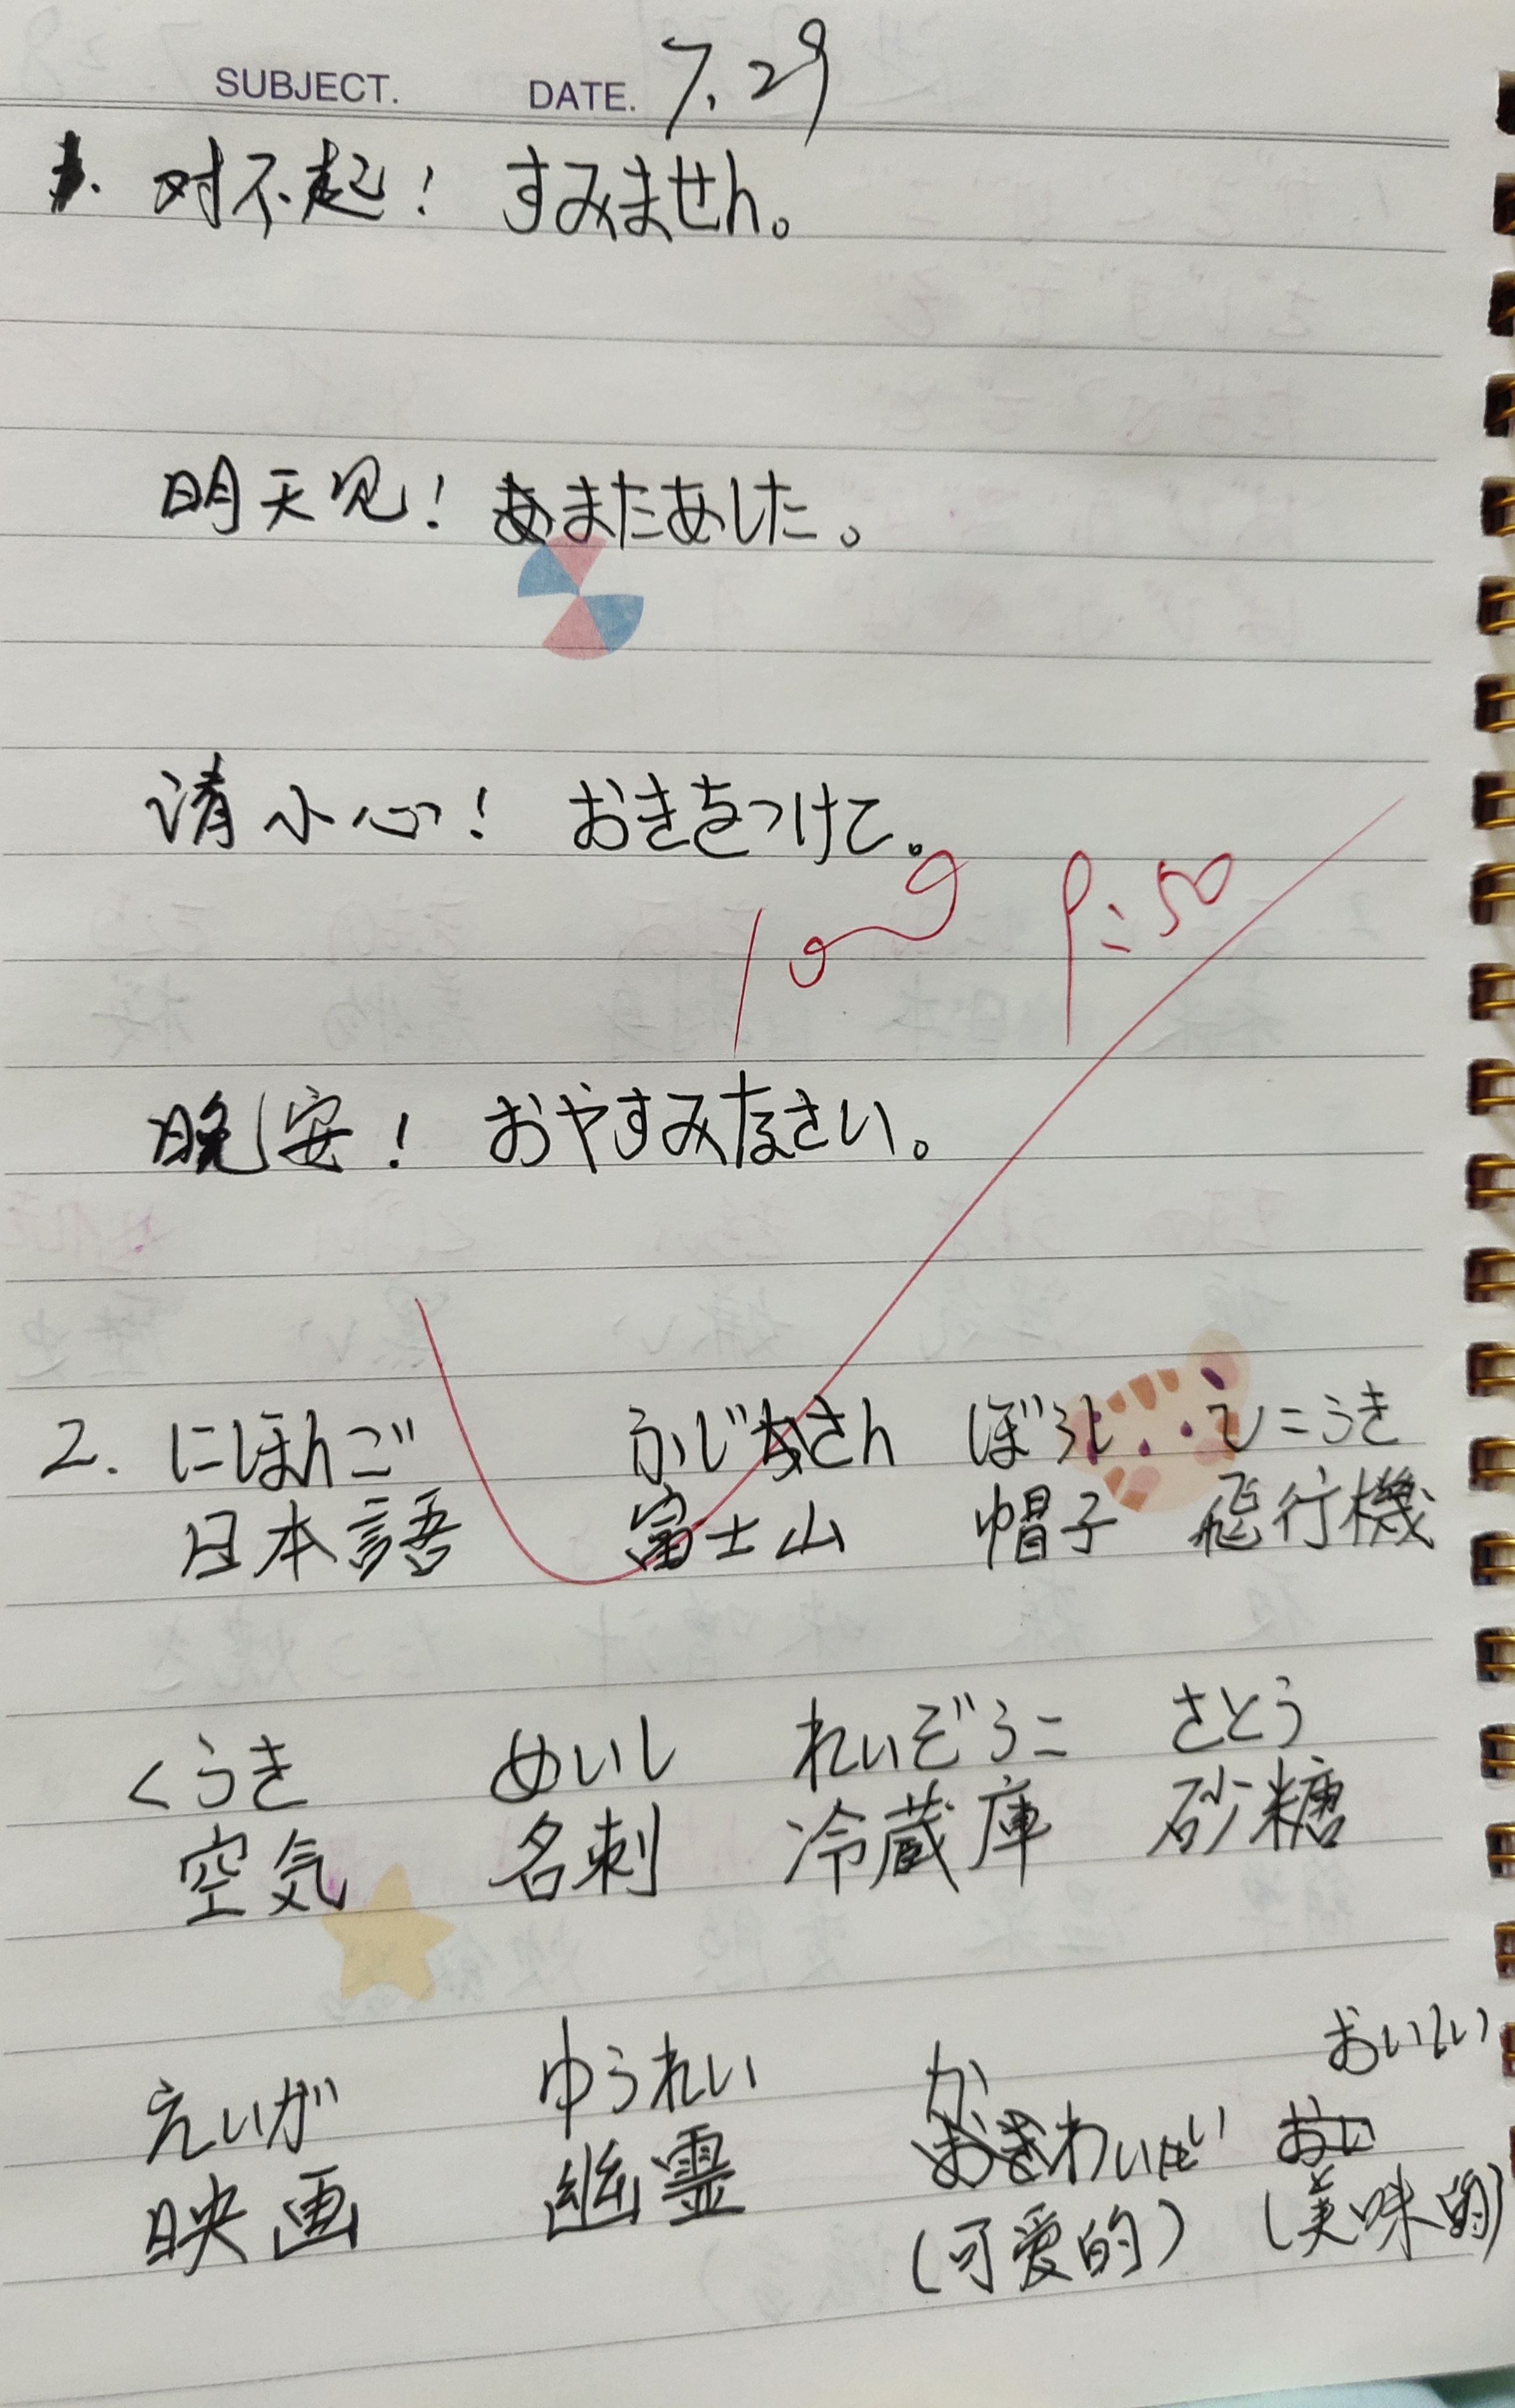 SUBJECT. DATE. 7.29
1. 对不起! すみません。
明天见! またあした。
请小心! おきをつけて。
100 9:50
晚安! おやすみなさい。
2. にほんご ふじさん ぼうし ひこうき
日本語 富士山 帽子 飛行機
くうき めいし れいぞうこ さとう
空気 名刺 冷蔵庫 砂糖
えいが ゆうれい かわいい おいしい
映画 幽霊 (可爱的) (美味的)